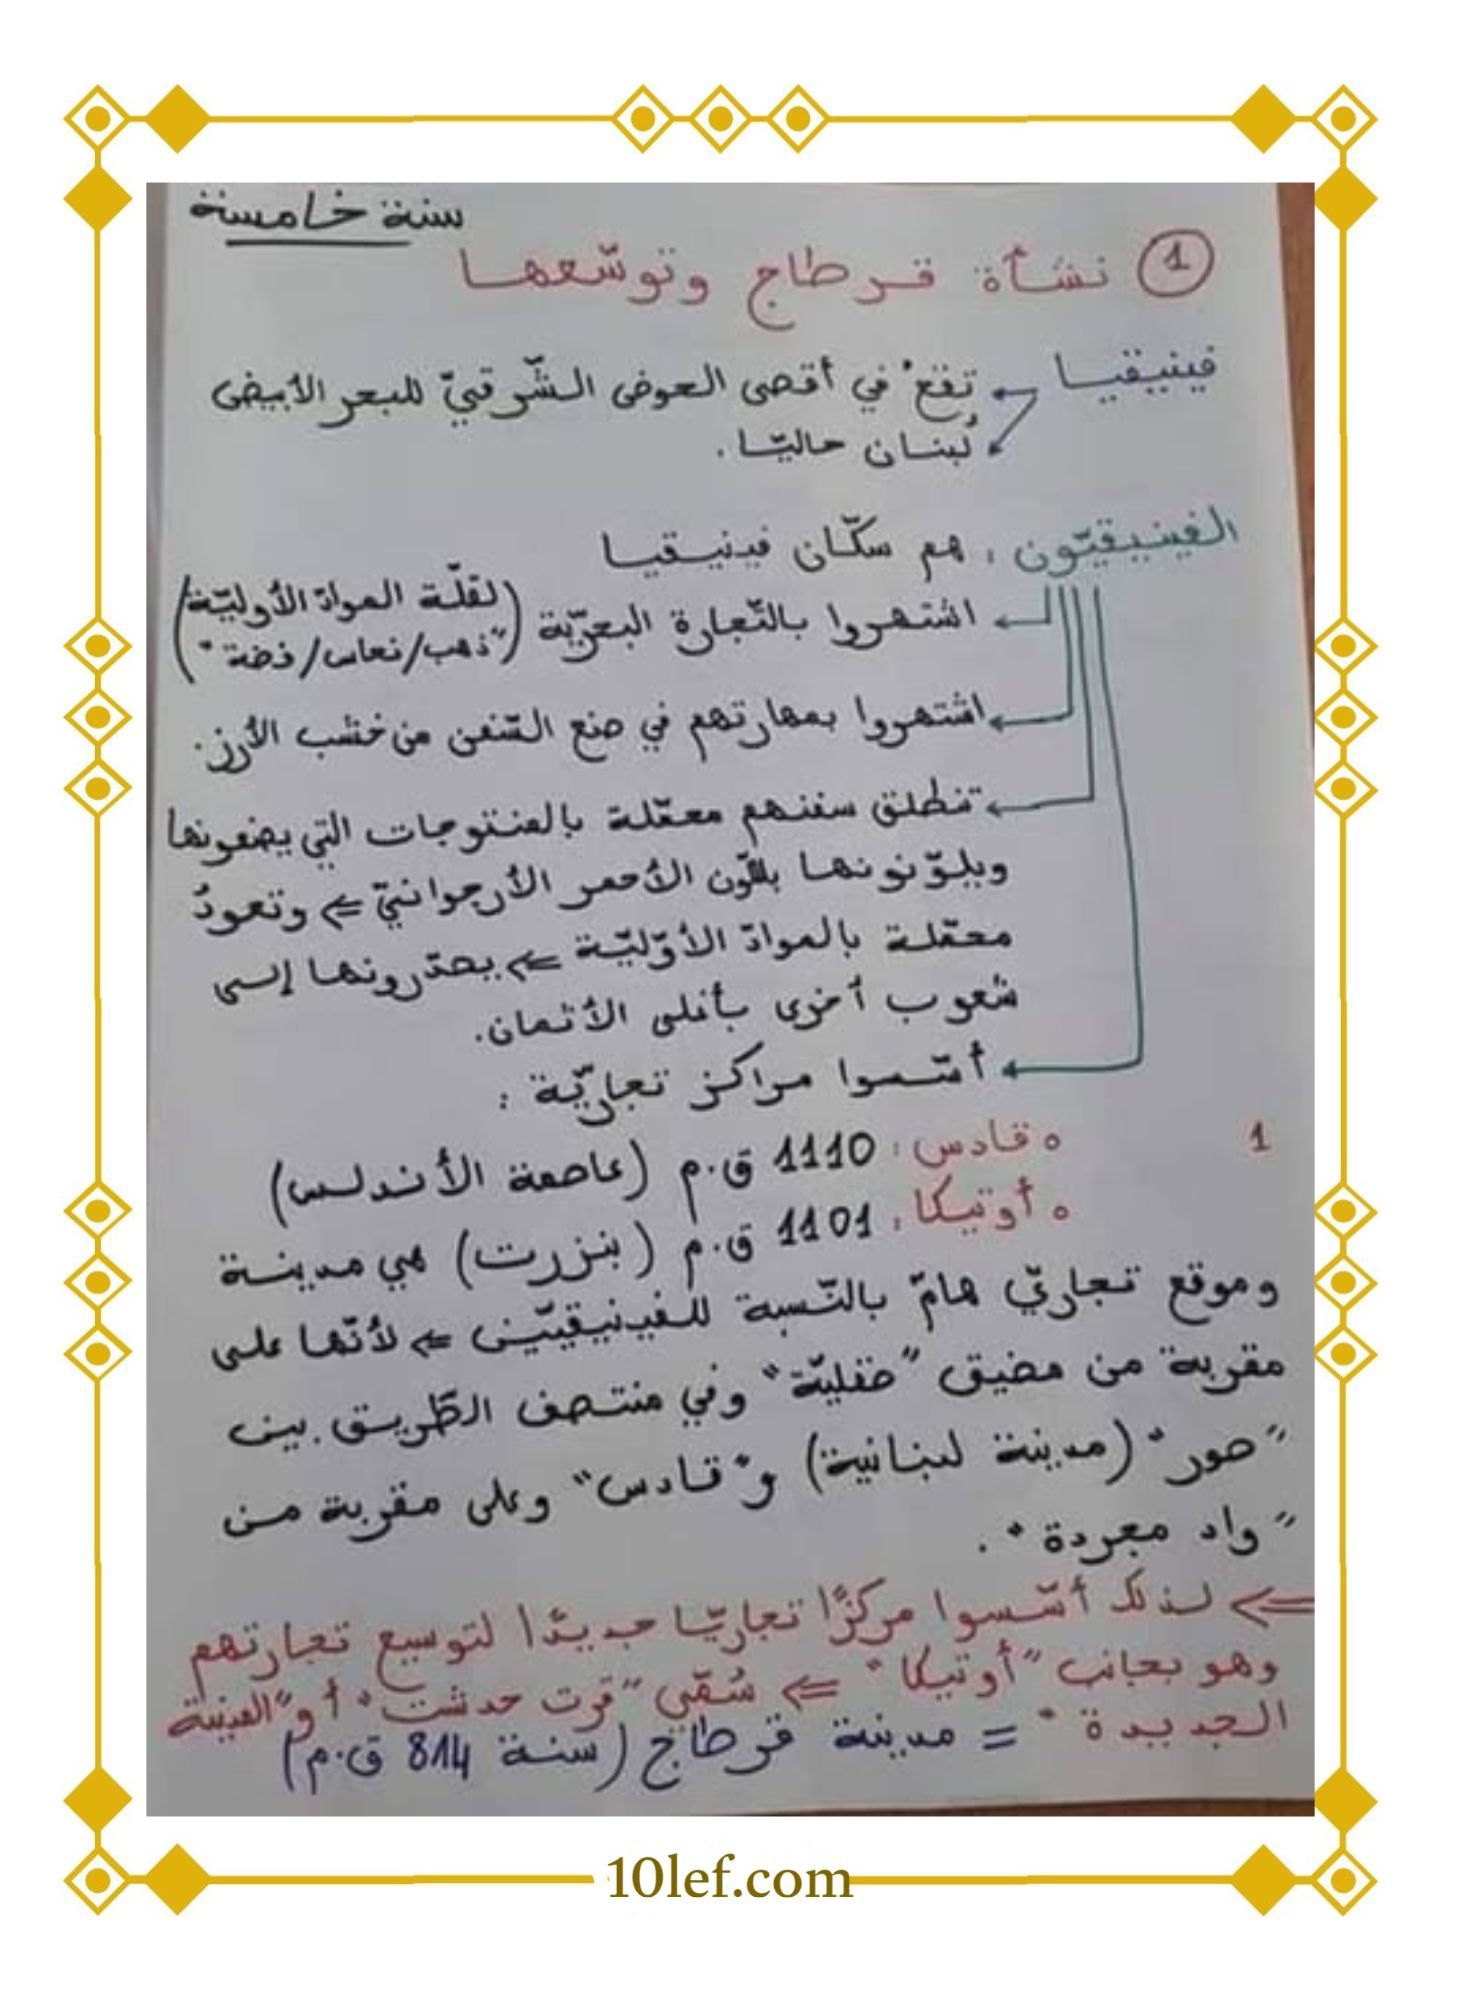 سنة خامسة
1 نشأة قرطاج وتوسّعها
فينيقيا ← تقع في أقصى الحوض الشّرقيّ للبحر الأبيض
لبنان حاليّا.
الفينيقيّون : هم سكّان فينيقيا
اشتهروا بالتّجارة البحريّة (لقلّة الموادّ الأوليّة
"ذهب/نحاس/فضة")
اشتهروا بمهارتهم في صنع السّفن من خشب الأرز.
تنطلق سفنهم محمّلة بالمنتوجات التي يصنعونها
ويلوّنونها باللّون الأحمر الأرجوانيّ ⇐ وتعودُ
محمّلة بالموادّ الأوّليّة ⇐ يصدّرونها إلى
شعوب أخرى بأغلى الأثمان.
أسّسوا مراكز تجاريّة :
1 ○ قادس : 1110 ق.م (عاصمة الأندلس)
○ أوتيكا : 1101 ق.م (بنزرت) هي مدينة
وموقع تجاريّ هامّ بالنّسبة للفينيقيّين ⇐ لأنّها على
مقربة من مضيق "صقليّة" وفي منتصف الطّريق بين
"صور" (مدينة لبنانية) و"قادس" وعلى مقربة من
"واد مجردة".
⇐ لذلك أسّسوا مركزًا تجاريّا جديدًا لتوسيع تجارتهم
وهو بجانب "أوتيكا" ⇐ سُمّي "قرت حدشت" أو "المدينة
الجديدة" = مدينة قرطاج (سنة 814 ق.م)
10lef.com